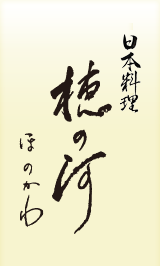 日本料理
穂の河
ほのかわ